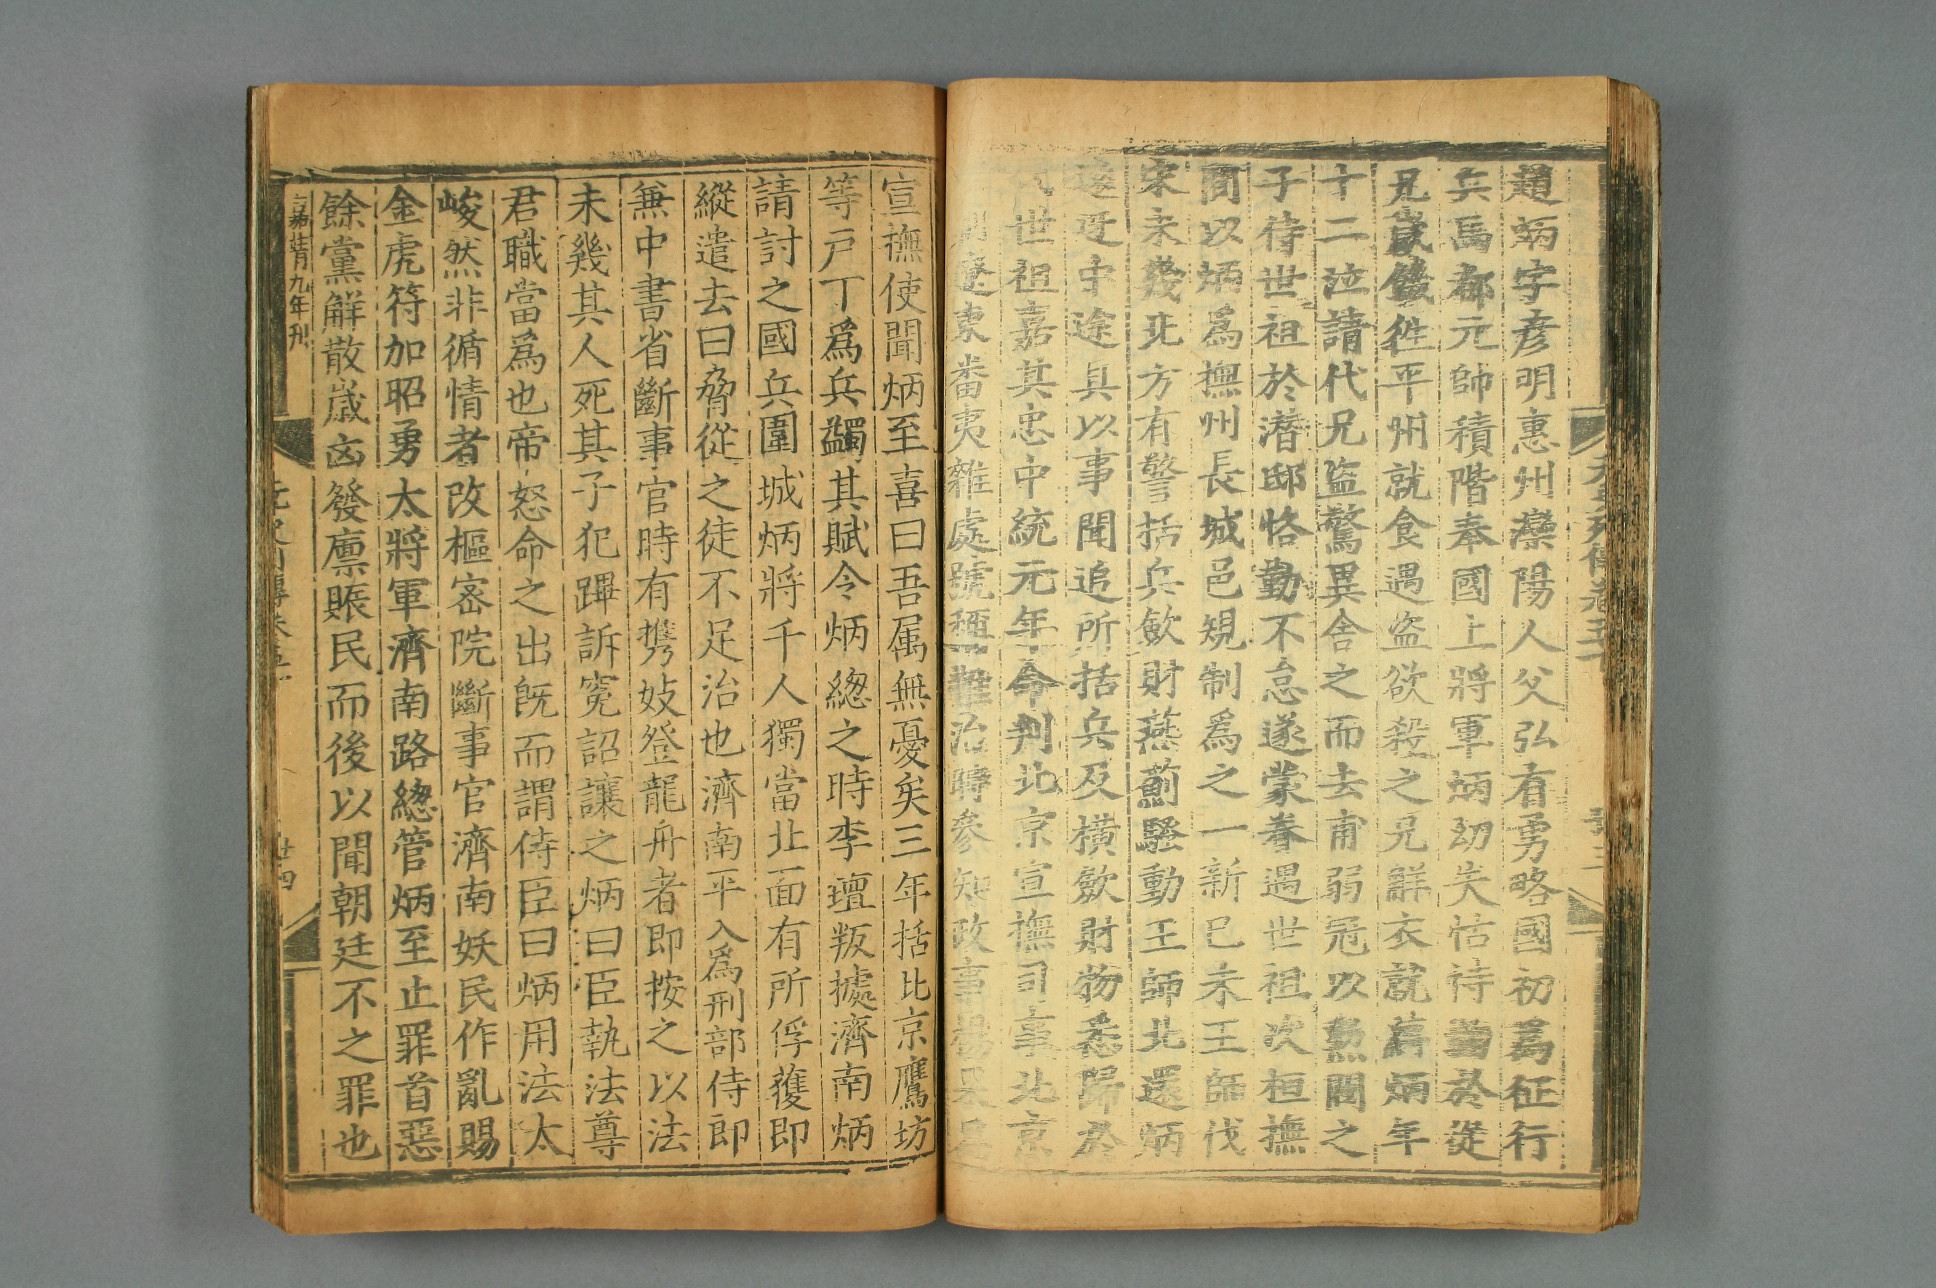 趙炳字彥明惠州灤陽人父弘有勇略國初爲征行
兵馬都元帥積階奉國上將軍炳幼失怙恃鞠於從
兄歲饑徃平州就食遇盜欲殺之兄解衣就縛炳年
十二泣請代兄盜驚異舍之而去甫弱冠以勲閥之
子待世祖於潛邸恪勤不怠遂蒙眷遇世祖次桓撫
間以炳爲撫州長城邑規制爲之一新己未王師伐
宋未幾北方有警括兵歛財燕薊騷動王師北還炳
遠迓中途具以事聞追所括兵及橫歛財物悉歸於
民世祖嘉其忠中統元年命判北京宣撫司事北京
遼東番夷雜處號稱難治時參知政事楊果爲
宣撫使聞炳至喜曰吾属無憂矣三年括北京鷹坊
等戶丁爲兵蠲其賦令炳緫之時李璮叛據濟南炳
請討之國兵圍城炳將千人獨當北面有所俘獲即
縱遣去曰脅從之徒不足治也濟南平入爲刑部侍郎
兼中書省斷事官時有携妓登龍舟者即按之以法
未幾其人死其子犯蹕訴寃詔讓之炳曰臣執法尊
君職當爲也帝怒命之出旣而謂侍臣曰炳用法太
峻然非循情者改樞宻院斷事官濟南妖民作亂賜
金虎符加昭勇大將軍濟南路緫管炳至止罪首惡
餘黨解散歲凶發廪賬民而後以聞朝廷不之罪也
嘉靖九年刊
廿四